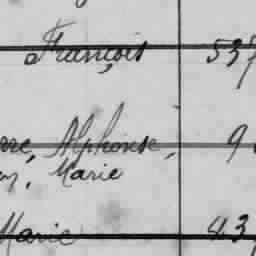 François 537
rre, Alphonse, 9
Marie
Marie 437